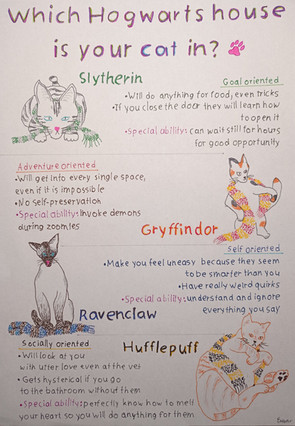 Which Hogwarts house
is your cat in?
Slytherin
Goal oriented
•Will do anything for food, even tricks
•If you close the door they will learn how
to open it
•Special ability: can wait still for hours
for good opportunity
Adventure oriented
•Will get into every single space,
even if it is impossible
•No self-preservation
•Special ability: invoke demons
during zoomies
Gryffindor
Self oriented
•Make you feel uneasy because they seem
to be smarter than you
•Have really weird quirks
•Special ability: understand and ignore
everything you say
Ravenclaw
Socially oriented
•Will look at you
with utter love even at the vet
•Gets hysterical if you go
to the bathroom without them
•Special ability: perfectly know how to melt
your heart, so you will do anything for them
Hufflepuff